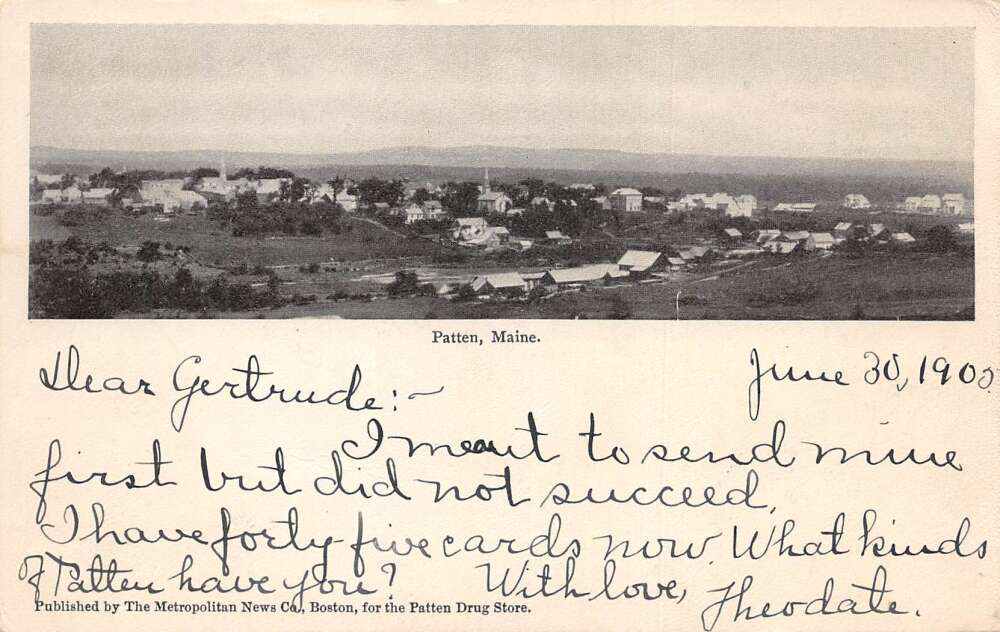 Patten, Maine.
Dear Gertrude:~ June 30, 1905
I meant to send mine
first but did not succeed.
I have forty five cards now. What kinds
of Patten have you? With love,
Theodate.
Published by The Metropolitan News Co., Boston, for the Patten Drug Store.